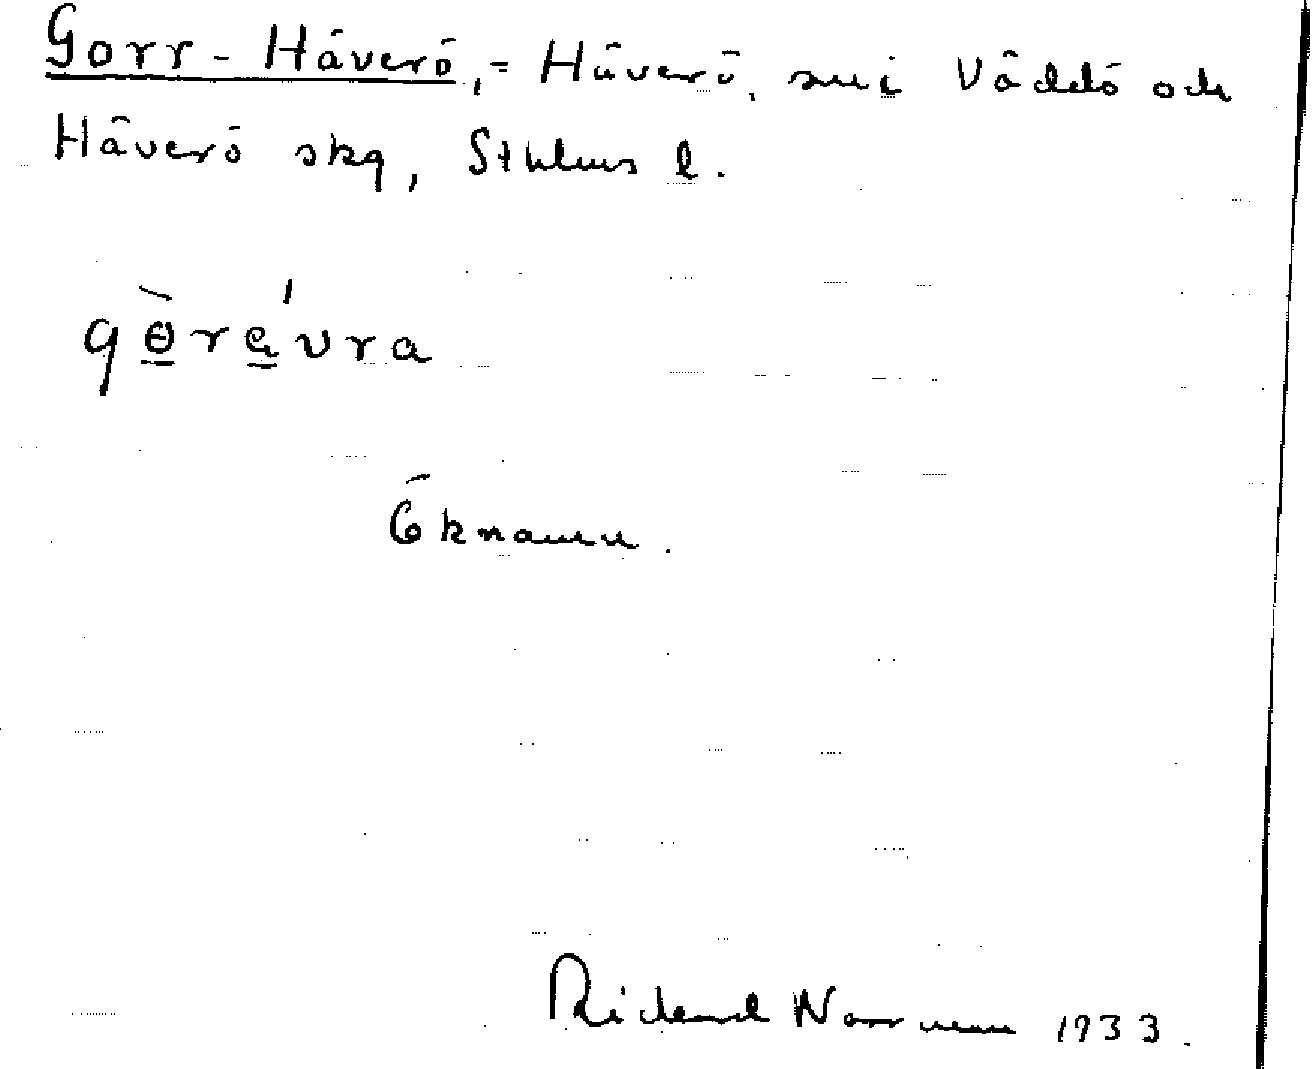 Gorr-Häverö, = Häverö, sn i Väddö och
Häverö skg, Sthlms l.
gɵ̀rávra
Öknamn.
Rickard Norrman 1933.